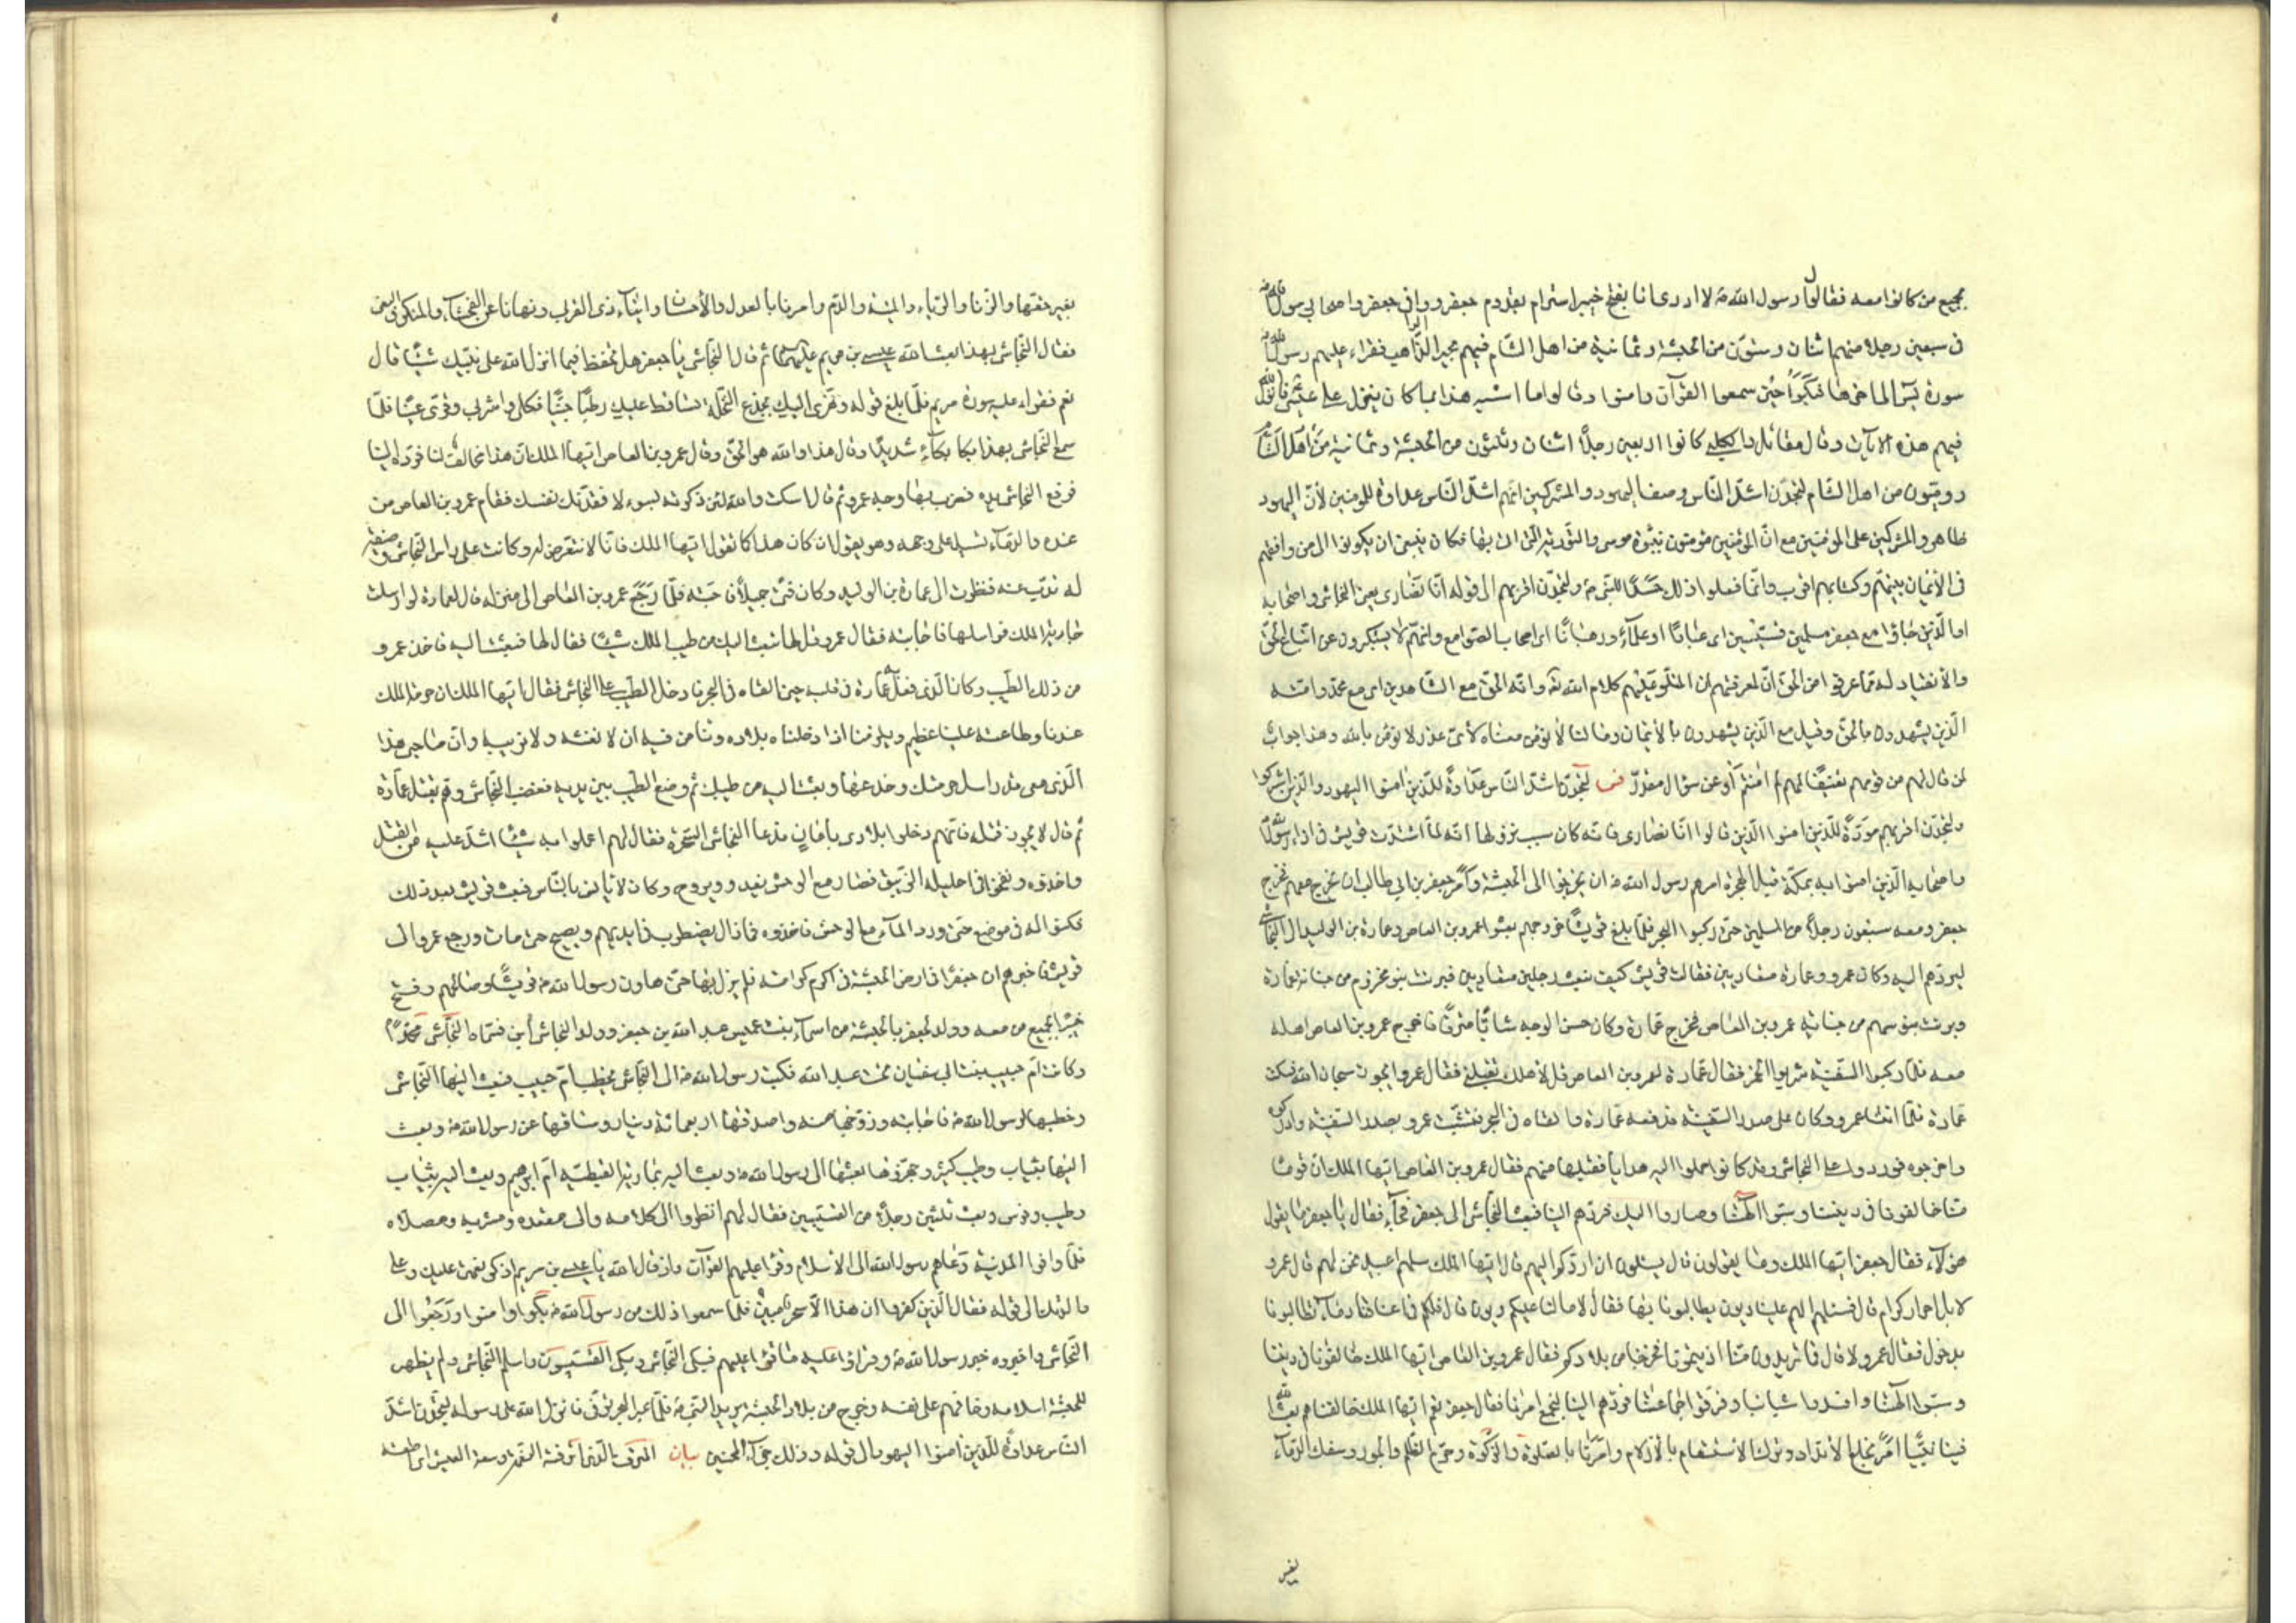 جميع من كانوا معه فقال رسول الله ص لا ادرى انا بفتح خيبر اسرام بقدوم جعفر ووافى جعفر واصحابه رسول الله ص
فى سبعين رجلا منهم اثنان وستون من الحبشة وثمانية من اهل الشام فيهم بحيرا الراهب فقراء عليهم رسول الله ص
سورة يس الى اخرها فبكوا حين سمعوا القرآن وامنوا وقالوا ما اشبه هذا بما كان ينزل على عيسى فانزل الله
فيهم هذه الآيات وقال مقاتل والكلبى كانوا اربعين رجلا اثنان وثلثون من الحبشة وثمانية من اهل الشام
روميون من اهل الشام لتجدن اشد الناس وصف اليهود والمشركين انهم اشد الناس عداوة للمومنين لأن اليهود
ظاهروا المشركين على المؤمنين مع ان المؤمنين يؤمنون بنبوة موسى والتورية التى اتى بها فكان ينبغى ان يكونوا الى من وافقهم
فى الأيمان بنبيهم وكتابهم اقرب وانما فعلوا ذلك حسدا للنبى ص ولتجدن اقربهم الى قوله انا نصارى يعنى النجاشى واصحابه
او الذين جاؤا مع جعفر مسلمين قسيسين اى عبادا او علمآء ورهبانا اى اصحاب الصوامع وانهم لا يستكبرون عن اتباع الحق
والأنقياد له مما عرفوا من الحق اى لمعرفتهم ان المتلو عليهم كلام الله وانه الحق مع الشاهدين اى مع محمد وامته
الذين يشهدون بالحق وقيل مع الذين يشهدون بالأيمان وما لنا لا نؤمن معناه لأى عذر لا نؤمن بالله وهذا جواب
لمن قال لهم من قومهم تعنيفا لهم لم امنتم أو عن سؤال مقدر فس لتجدن اشد الناس عداوة للذين امنوا اليهود والذين اشركوا
ولتجدن اقربهم مودة للذين امنوا الذين قالوا انا نصارى فانه كان سبب نزولها انه لما اشتدت قريش فى اذى رسول الله
واصحابه الذين امنوا به بمكة قبل الهجرة امرهم رسول الله ص ان يخرجوا الى الحبشة وامر جعفر بن ابى طالب ان يخرج معهم فخرج
جعفر ومعه سبعون رجلا من المسلمين حتى ركبوا البحر فلما بلغ قريشا خروجهم بعثوا عمرو بن العاص وعمارة بن الوليد الى النجاشى
ليردهم اليه وكان عمرو وعمارة متعاديين فقالت قريش كيف نبعث رجلين متعاديين فبرئت بنو مخزوم من جناية عمارة
وبرئت بنو سهم من جناية عمرو بن العاص فخرج عمارة وكان حسن الوجه شابا مترفا فاخرج عمرو بن العاص اهله
معه فلما ركبوا السفينة شربوا الخمر فقال عمارة لعمرو بن العاص قل لأهلك تقبلنى فقال عمرو ايجوز سبحان الله فسكت
عمارة فلما انتشا عمرو وكان على صدر السفينة فدفعه عمارة والقاه فى البحر فتشبث عمرو بصدر السفينة وادركوه
واخرجوه فوردوا على النجاشى وقد كانوا حملوا اليه هدايا فقبلها منهم فقال عمرو بن العاص ايها الملك ان قوما
منا خالفونا فى ديننا وسبوا الهتنا وصاروا اليك فردهم الينا فبعث النجاشى الى جعفر فجآء فقال يا جعفر ما يقول
هؤلآء فقال جعفر ايها الملك وما يقولون قال يسئلون ان اردكم اليهم قال ايها الملك سلهم اعبيد نحن لهم قال عمرو
لا بل احرار كرام قال فسلهم الهم علينا ديون يطالبونا بها فقال لا ما لنا عليكم ديون قال فلكم فى اعناقنا دمآء تطالبونا
بدخول فقال عمرو لا قال فما تريدون منا اذيتمونا فخرجنا من بلادكم فقال عمرو بن العاص ايها الملك خالفونا فى ديننا
وسبوا الهتنا وافسدوا شبابنا وفرقوا جماعتنا فردهم الينا لنجمع امرنا فقال جعفر نعم ايها الملك خالفناهم بعث الله
فينا نبيا امر بخلع الأنداد وترك الأستقسام بالأزلام وامرنا بالصلوة والزكوة وحرم الظلم والجور وسفك الدمآء
بغير
بغير حقها والزنا والربا والميتة والدم وامرنا بالعدل والأحسان وايتآء ذى القربى ونهانا عن الفحشآء والمنكر والبغى
فقال النجاشى بهذا بعث الله عيسى بن مريم عليهما ثم قال النجاشى يا جعفر هل تحفظ فيما انزل الله على نبيك شيئا قال
نعم فقراء عليه سورة مريم فلما بلغ قوله وهزى اليك بجذع النخلة تساقط عليك رطبا جنيا فكلى واشربى وقرى عينا فلما
سمع النجاشى بهذا بكا بكآء شديدا وقال هذا والله هو الحق وقال عمرو بن العاص ايها الملك ان هذا مخالف لنا فرده الينا
فرفع النجاشى يده فضرب بها وجه عمرو ثم قال اسكت والله لئن ذكرته بسوء لا فقدنك نفسك فقام عمرو بن العاص من
عنده والدمآء تسيل على وجهه وهو يقول ان كان هذا كما تقول ايها الملك فانا لا نتعرض له وكانت على راس النجاشى وصيفة
له تذب عنه فنظرت الى عمارة بن الوليد وكان فتى جميلا فاحبته فلما رجع عمرو بن العاص الى منزله قال لعمارة لو ارسلت
جارية الملك فراسلها فاجابته فقال عمرو قل لها تبعث اليك من طيب الملك شيئا فقال لها فبعثت اليه فاخذ عمرو
من ذلك الطيب وكان الذى فعل به عمارة فى قلبه حين القاه فى البحر فادخل الطيب على النجاشى فقال ايها الملك ان حرمة الملك
عندنا وطاعته علينا عظيم ويلزمنا اذا دخلنا بلاده ونامن فيه ان لا نغشه ولا نريبه وان صاحبى هذا
الذى معى قد راسل حرمتك وخدعها وبعثت اليه من طيبك ثم وضع الطيب بين يديه فغضب النجاشى وهم بقتل عمارة
ثم قال لا يجوز قتله فانهم دخلوا بلادى بأمان فدعا النجاشى السحرة فقال لهم اعملوا به شيئا اشد عليه من القتل
واخذوه ونفخوا فى احليله الزيبق فصار مع الوحش يغدو ويروح وكان لا يأنس بالناس فبعث قريش بعد ذلك
فكمنوا له فى موضع حتى ورد المآء مع الوحش فاخذوه فما زال يضطرب فى ايديهم ويصيح حتى مات ورجع عمرو الى
قريش فاخبرهم ان جعفرا فى ارض الحبشة فى اكرم كرامته فلم يزل بها حتى هادن رسول الله ص قريشا وصالحهم وفتح
خيبر بجميع من معه وولد لجعفر بالحبشة من اسمآء بنت عميس عبد الله بن جعفر وولد النجاشى ابن فسماه النجاشى محمدا
وكانت ام حبيب بنت ابى سفيان تحت عبد الله فكتب رسول الله ص الى النجاشى يخطب ام حبيب فبعث اليها النجاشى
وخطبها لرسول الله ص فاجابته وزوجها منه واصدقها اربعمائة دينار وساقها عن رسول الله ص وبعث
اليها بثياب وطيب كثير وجهزها وبعثها الى رسول الله ص وبعث اليه بمارية القبطية ام ابرهيم وبعث اليه بثياب
وطيب وفرس وبعث ثلثين رجلا من القسيسين فقال لهم انظروا الى كلامه والى مقعده ومشربه ومصلاه
فلما وافوا المدينة دعاهم رسول الله الى الاسلام وقرا عليهم القرآن واذ قال الله يا عيسى بن مريم اذكر نعمتى عليك وعلى
والدتك الى قوله فقال الذين كفروا ان هذا الا سحر مبين فلما سمعوا ذلك من رسول الله ص بكوا وامنوا ورجعوا الى
النجاشى واخبروه خبر رسول الله ص وقراؤا عليه ما قرا عليهم فبكى النجاشى وبكى القسيسون واسلم النجاشى ولم يظهر
للحبشة اسلامه وخافهم على نفسه وخرج من بلاد الحبشة يريد النبى ص فلما عبر البحر توفى فانزل الله على رسوله لتجدن اشد
الناس عداوة للذين امنوا اليهود الى قوله وذلك جزآء المحسنين بيان المترف الذى اترفته النعمة وسعة العيش اى اطغته